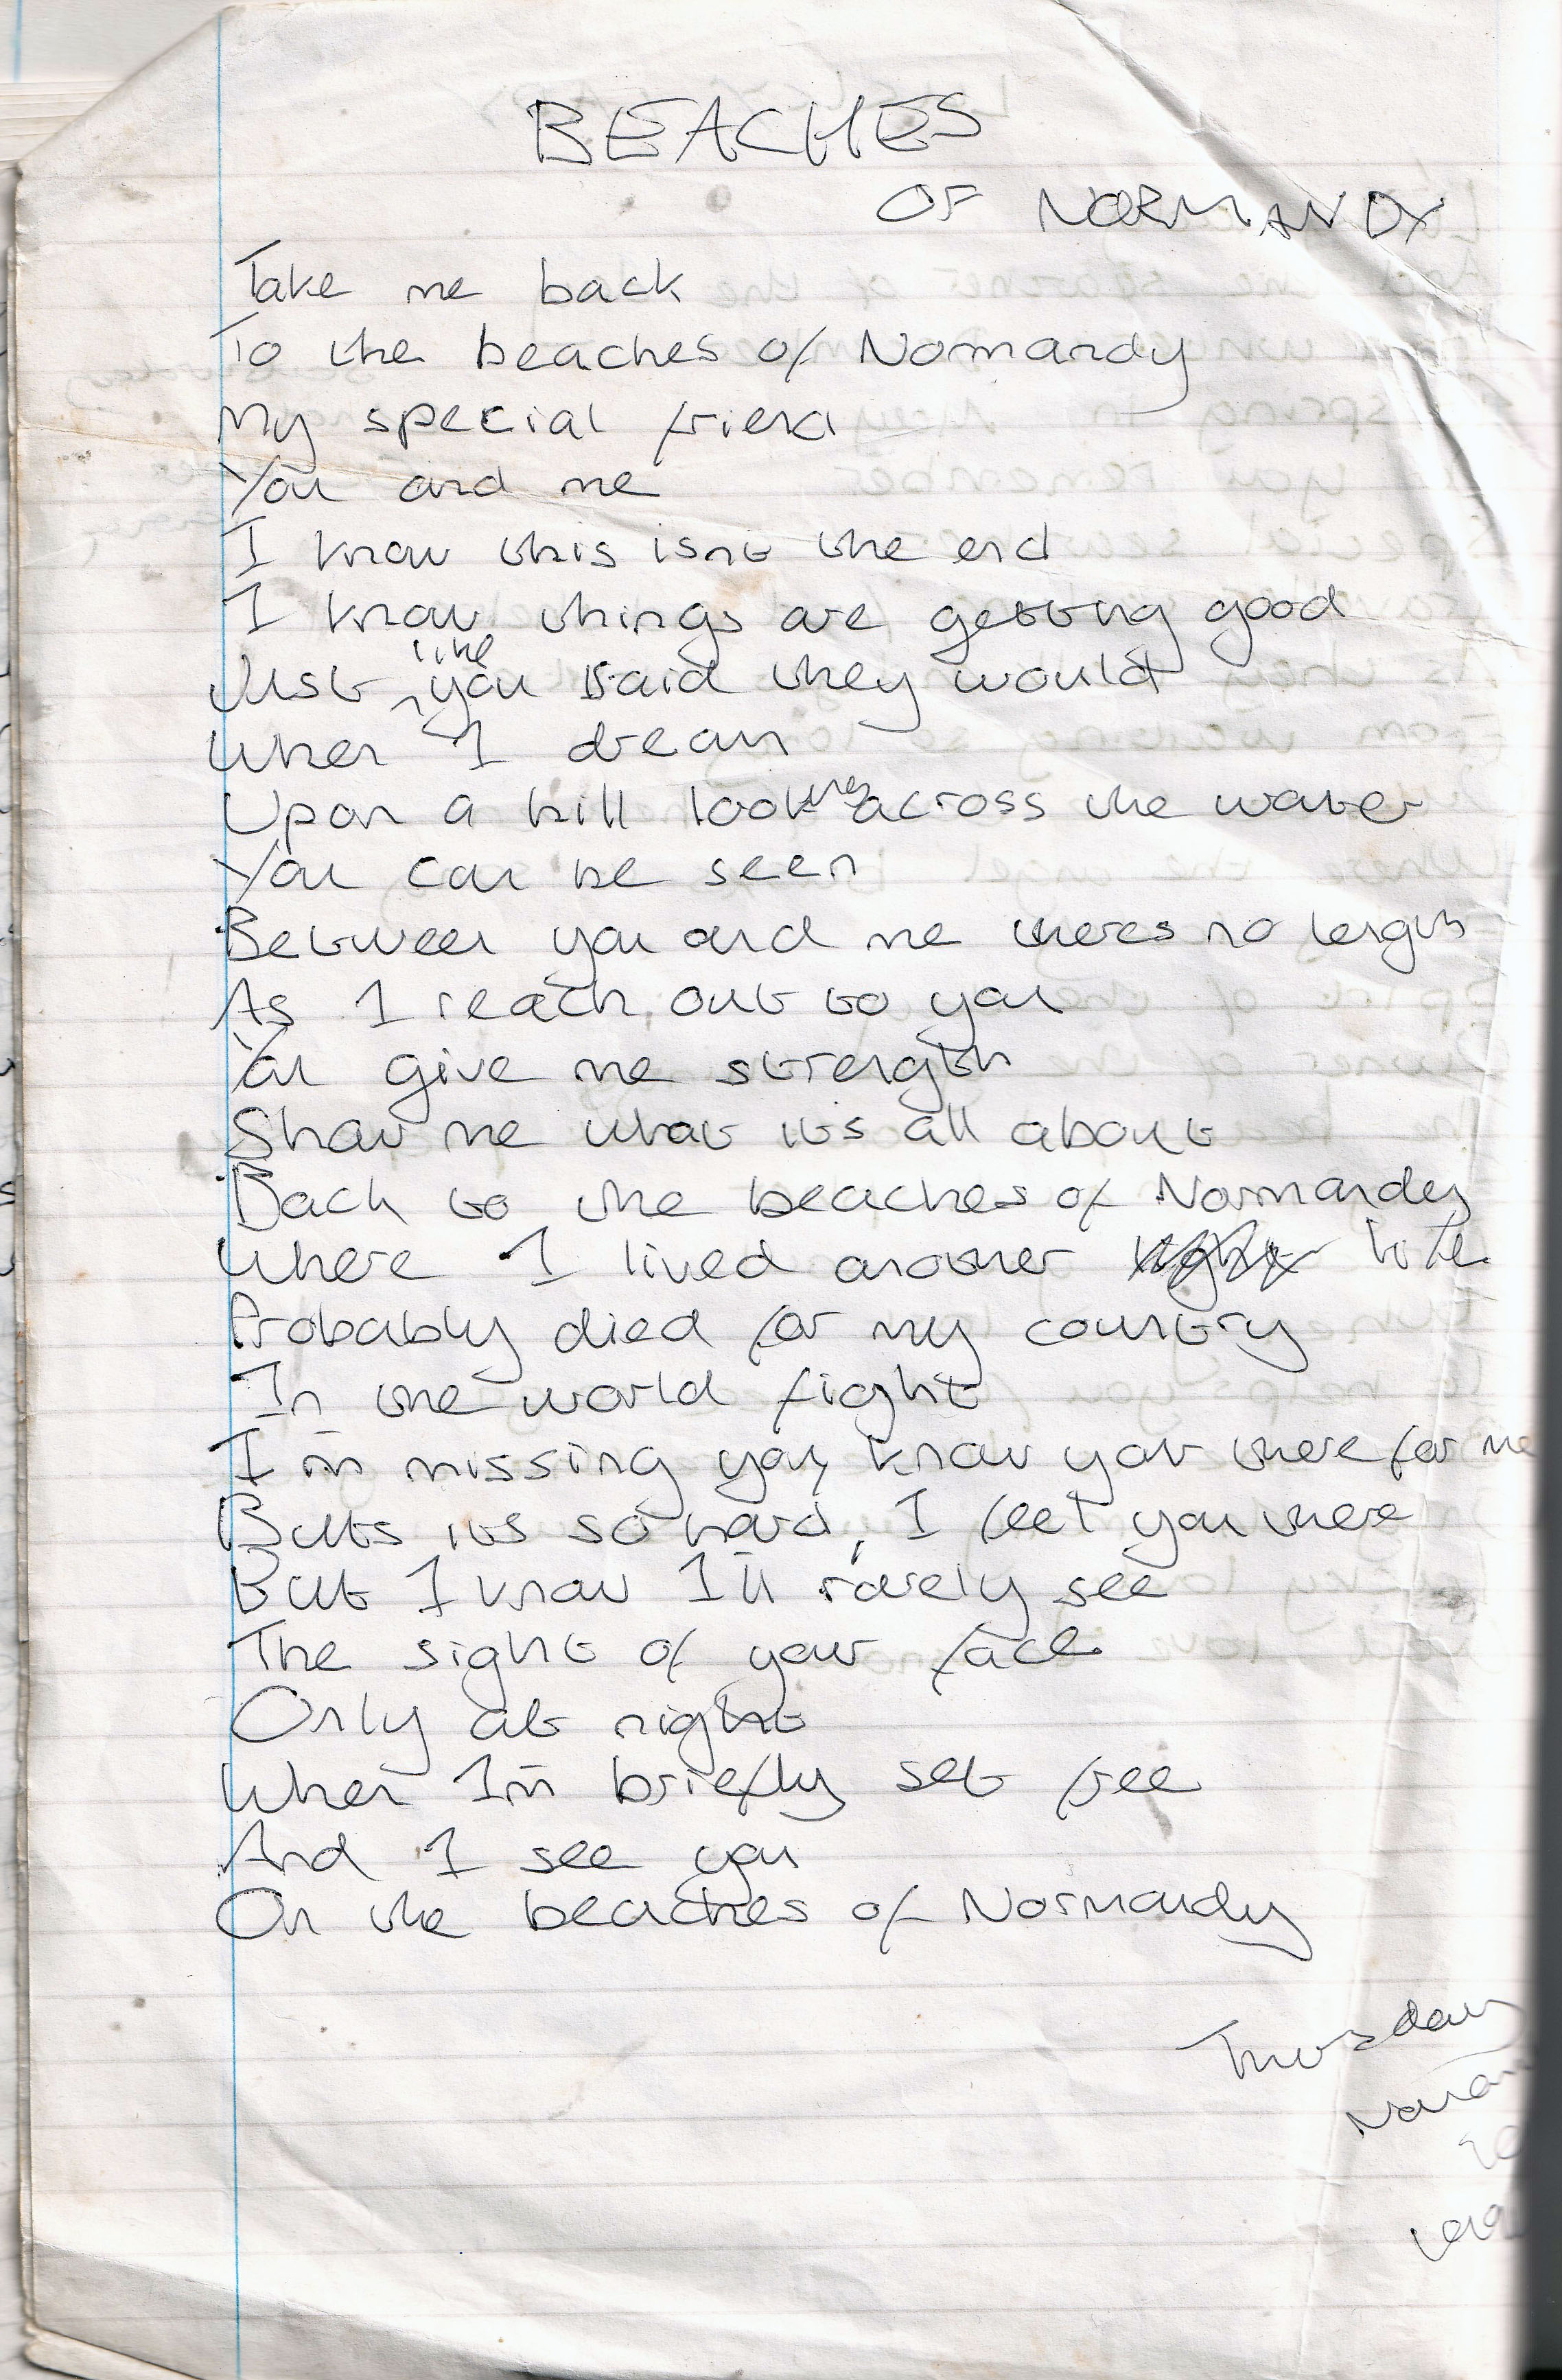 BEACHES
OF NORMANDY
Take me back
To the beaches of Normandy
My special friend
You and me
I know this isnt the end
I know things are getting good
Just like you said they would
When I dream
Upon a hill looking across the water
You can be seen
Between you and me theres no length
As I reach out to you
You give me strength
Show me what its all about
Back to the beaches of Normandy
Where I lived another life
Probably died for my country
In the world fight
I'm missing you, know your there for me
Buts its so hard, I feel you there
But I know I'll rarely see
The sight of your face
Only at night
When I'm briefly set free
And I see you
On the beaches of Normandy
Thursday